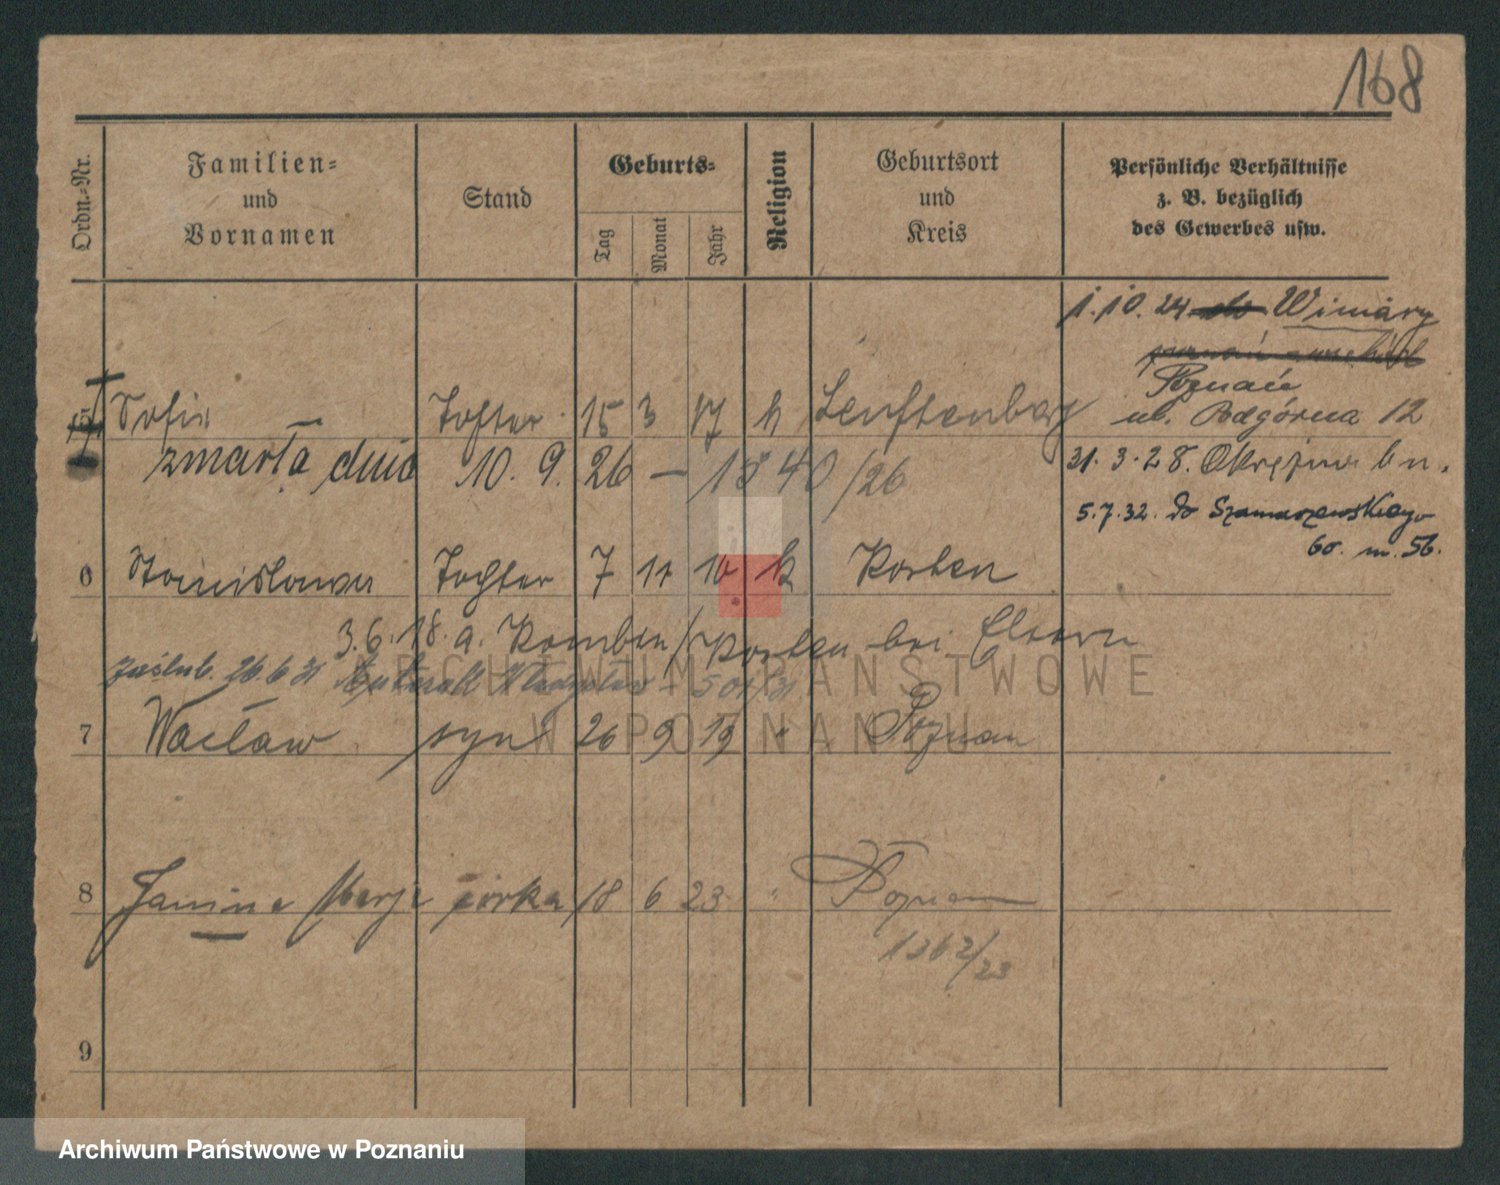 168
Ordn.-Nr.
Familien-
und
Vornamen
Stand
Geburts-
Tag
Monat
Jahr
Religion
Geburtsort
und
Kreis
Persönliche Verhältnisse
z. B. bezüglich
des Gewerbes usw.
1.10.24 Winiary
Poznań
ul. Podgórna 12
5 Sofie Tochter 15 3 17 k
zmarła dnia 10. 9. 26 – 1840/26
31.3.28.
5.7.32. do Szamarzewskiego
60. m. 56.
6 Stanislawa Tochter 7 11 10 k Kosten
3.6.18. a. Kosten bei Eltern
zaślub. 26.6.31 501/31
7 Wacław syn 26 9 19 " Poznan
8 Janina Marja córka 18 6 23 " Poznan
1362/23
9
ARCHIWUM PAŃSTWOWE
W POZNANIU
Archiwum Państwowe w Poznaniu